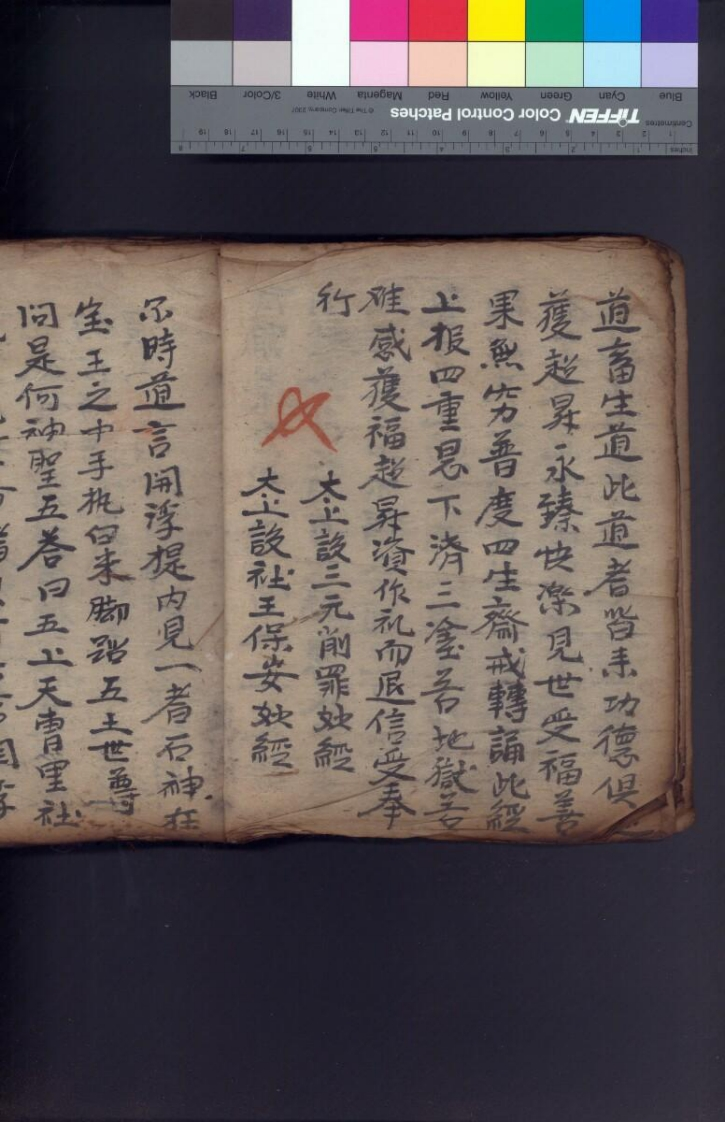 道畜生道此道者皆未功德俱
獲超昇永臻快楽見世受福善
果無穷普度四生齋戒轉誦此經
上报四重恩下濟三塗苦地獄苦
难感獲福超昇演作礼而退信受奉
行
太上說三元削罪妙經
太上說社王保安妙經
尔時道言開浮提内見一者石神在
宝王之中手执白来脚踏五土世尊
问是何神聖五荅曰五上天曹里社
TIFFEN Color Control Patches
© The Tiffen Company, 2007
Centimetres
Inches
Blue Cyan Green Yellow Red Magenta White 3/Color Black